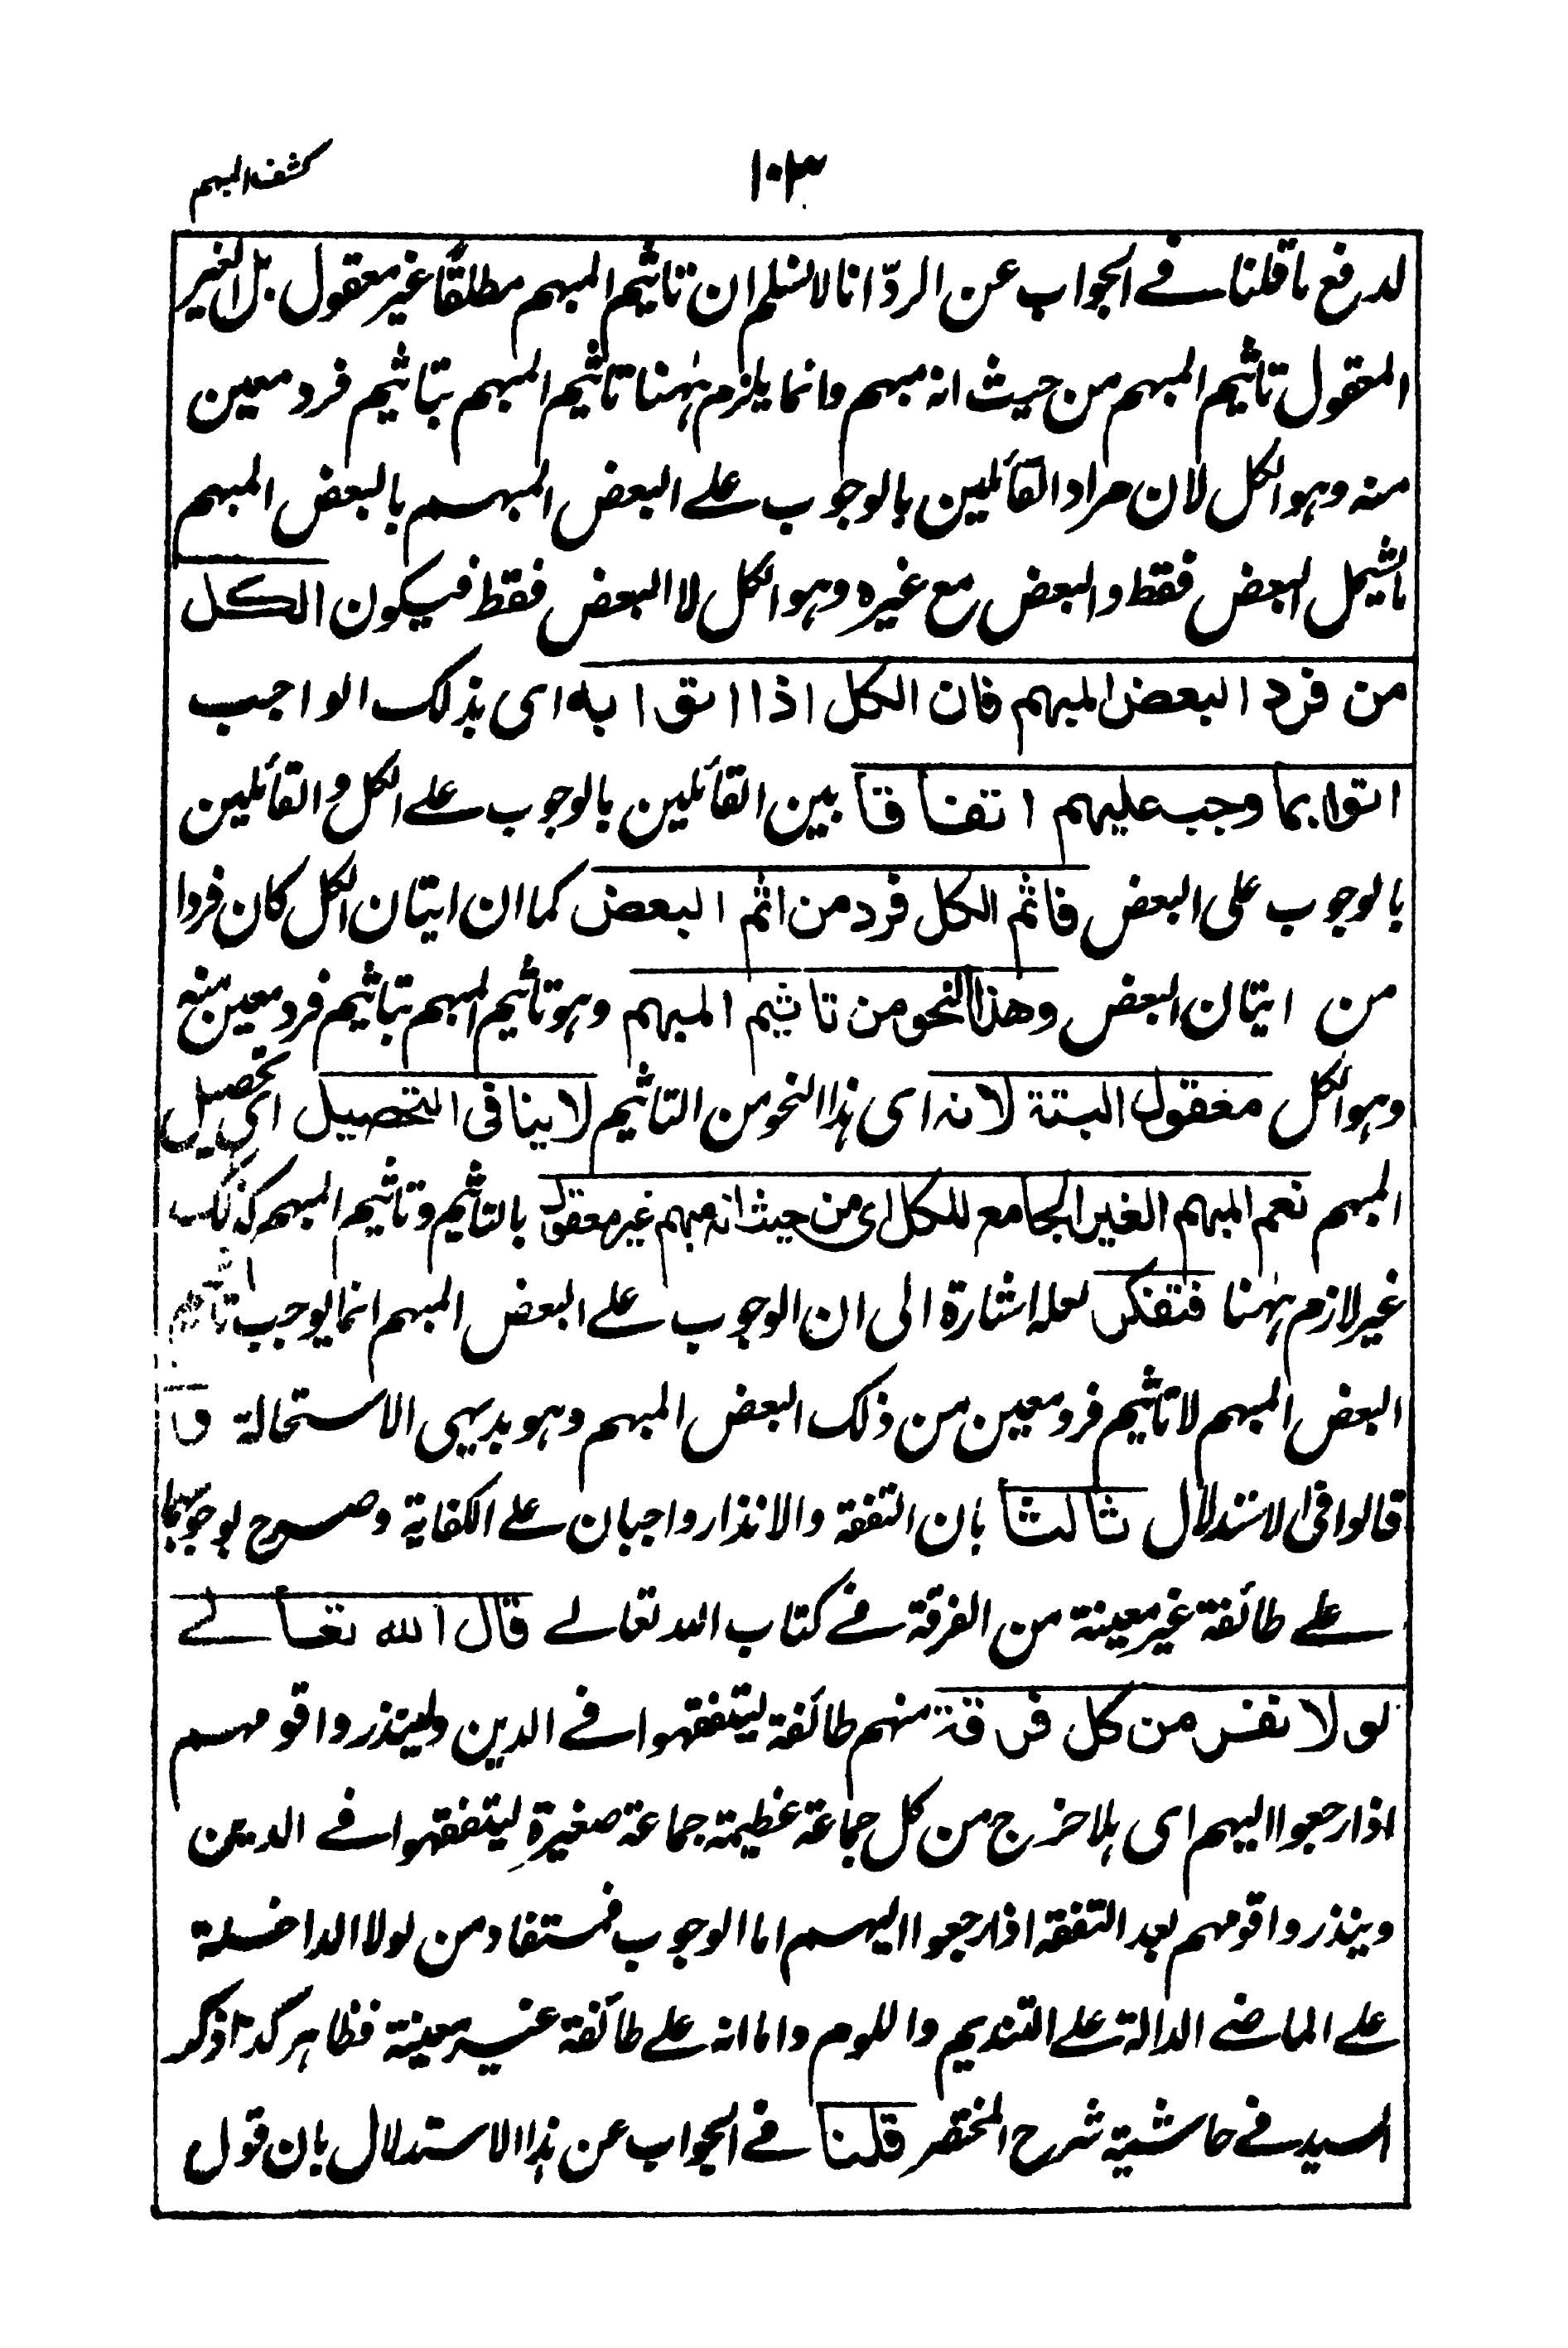 كشف المبهم
١٠٣
لدرفع ما قلنا فے الجواب عن الردّ انا لا نسلم ان تاثيم المبهم مطلقًا غير معقول بل الغير
المعقول تاثيم المبهم من حيث انه مبهم وانما يلزم ههنا تاثيم المبهم بتاثيم فرد معين
منه وهو الكل لان مراد القائلين بالوجوب علے البعض المبهم بالبعض المبهم
ما يشمل البعض فقط والبعض مع غيره وهو الكل لا البعض فقط فيكون الكل
من فرد البعض المبهم فان الكل اذا اتوا به اى بذلك الواجب
اتوا بما وجب عليهم اتفاقا بين القائلين بالوجوب علے الكل والقائلين
بالوجوب على البعض فاثم الكل فرد من اثم البعض كما ان ايتان الكل كان فردا
من ايتان البعض وهذا النحو من تاثيم المبهم وهو تاثيم المبهم بتاثيم فرد معين منه
وهو الكل معقول البتة لانه اى هذا النحو من التاثيم لا ينافى التحصيل اى تحصيل
المبهم نعم المبهم الغير الجامع للكل اى من حيث انه مبهم غير معقول بالتاثيم وتاثيم المبهم كذلك
غير لازم ههنا فتفكر لعله اشارة الى ان الوجوب علے البعض المبهم انما يوجب تاثيم
البعض المبهم لا تاثيم فرد معين من ذلك البعض المبهم وهو بديهى الاستحالة و
قالوا فى الاستدلال ثالثا بان التفقه والانذار واجبان علے الكفاية وصرح بوجوبهما
علے طائفة غير معينة من الفرقة فے كتاب الله تعالے قال الله تعالے
لولا نفر من كل فرقة منهم طائفة ليتفقهوا فے الدين ولينذروا قومهم
اذا رجعوا اليهم اى هلا خرج من كل جماعة عظيمة جماعة صغيرة ليتفقهوا فے الدين
وينذروا قومهم بعد التفقه اذا رجعوا اليهم اما الوجوب فمستفاد من لولا الداخلة
علے الماضے الدالة علے التنديم واللوم واما انه علے طائفة غير معينة فظاهر كذا ذكر
السيد فے حاشية شرح المختصر قلنا فے الجواب عن هذا الاستدلال بان قول